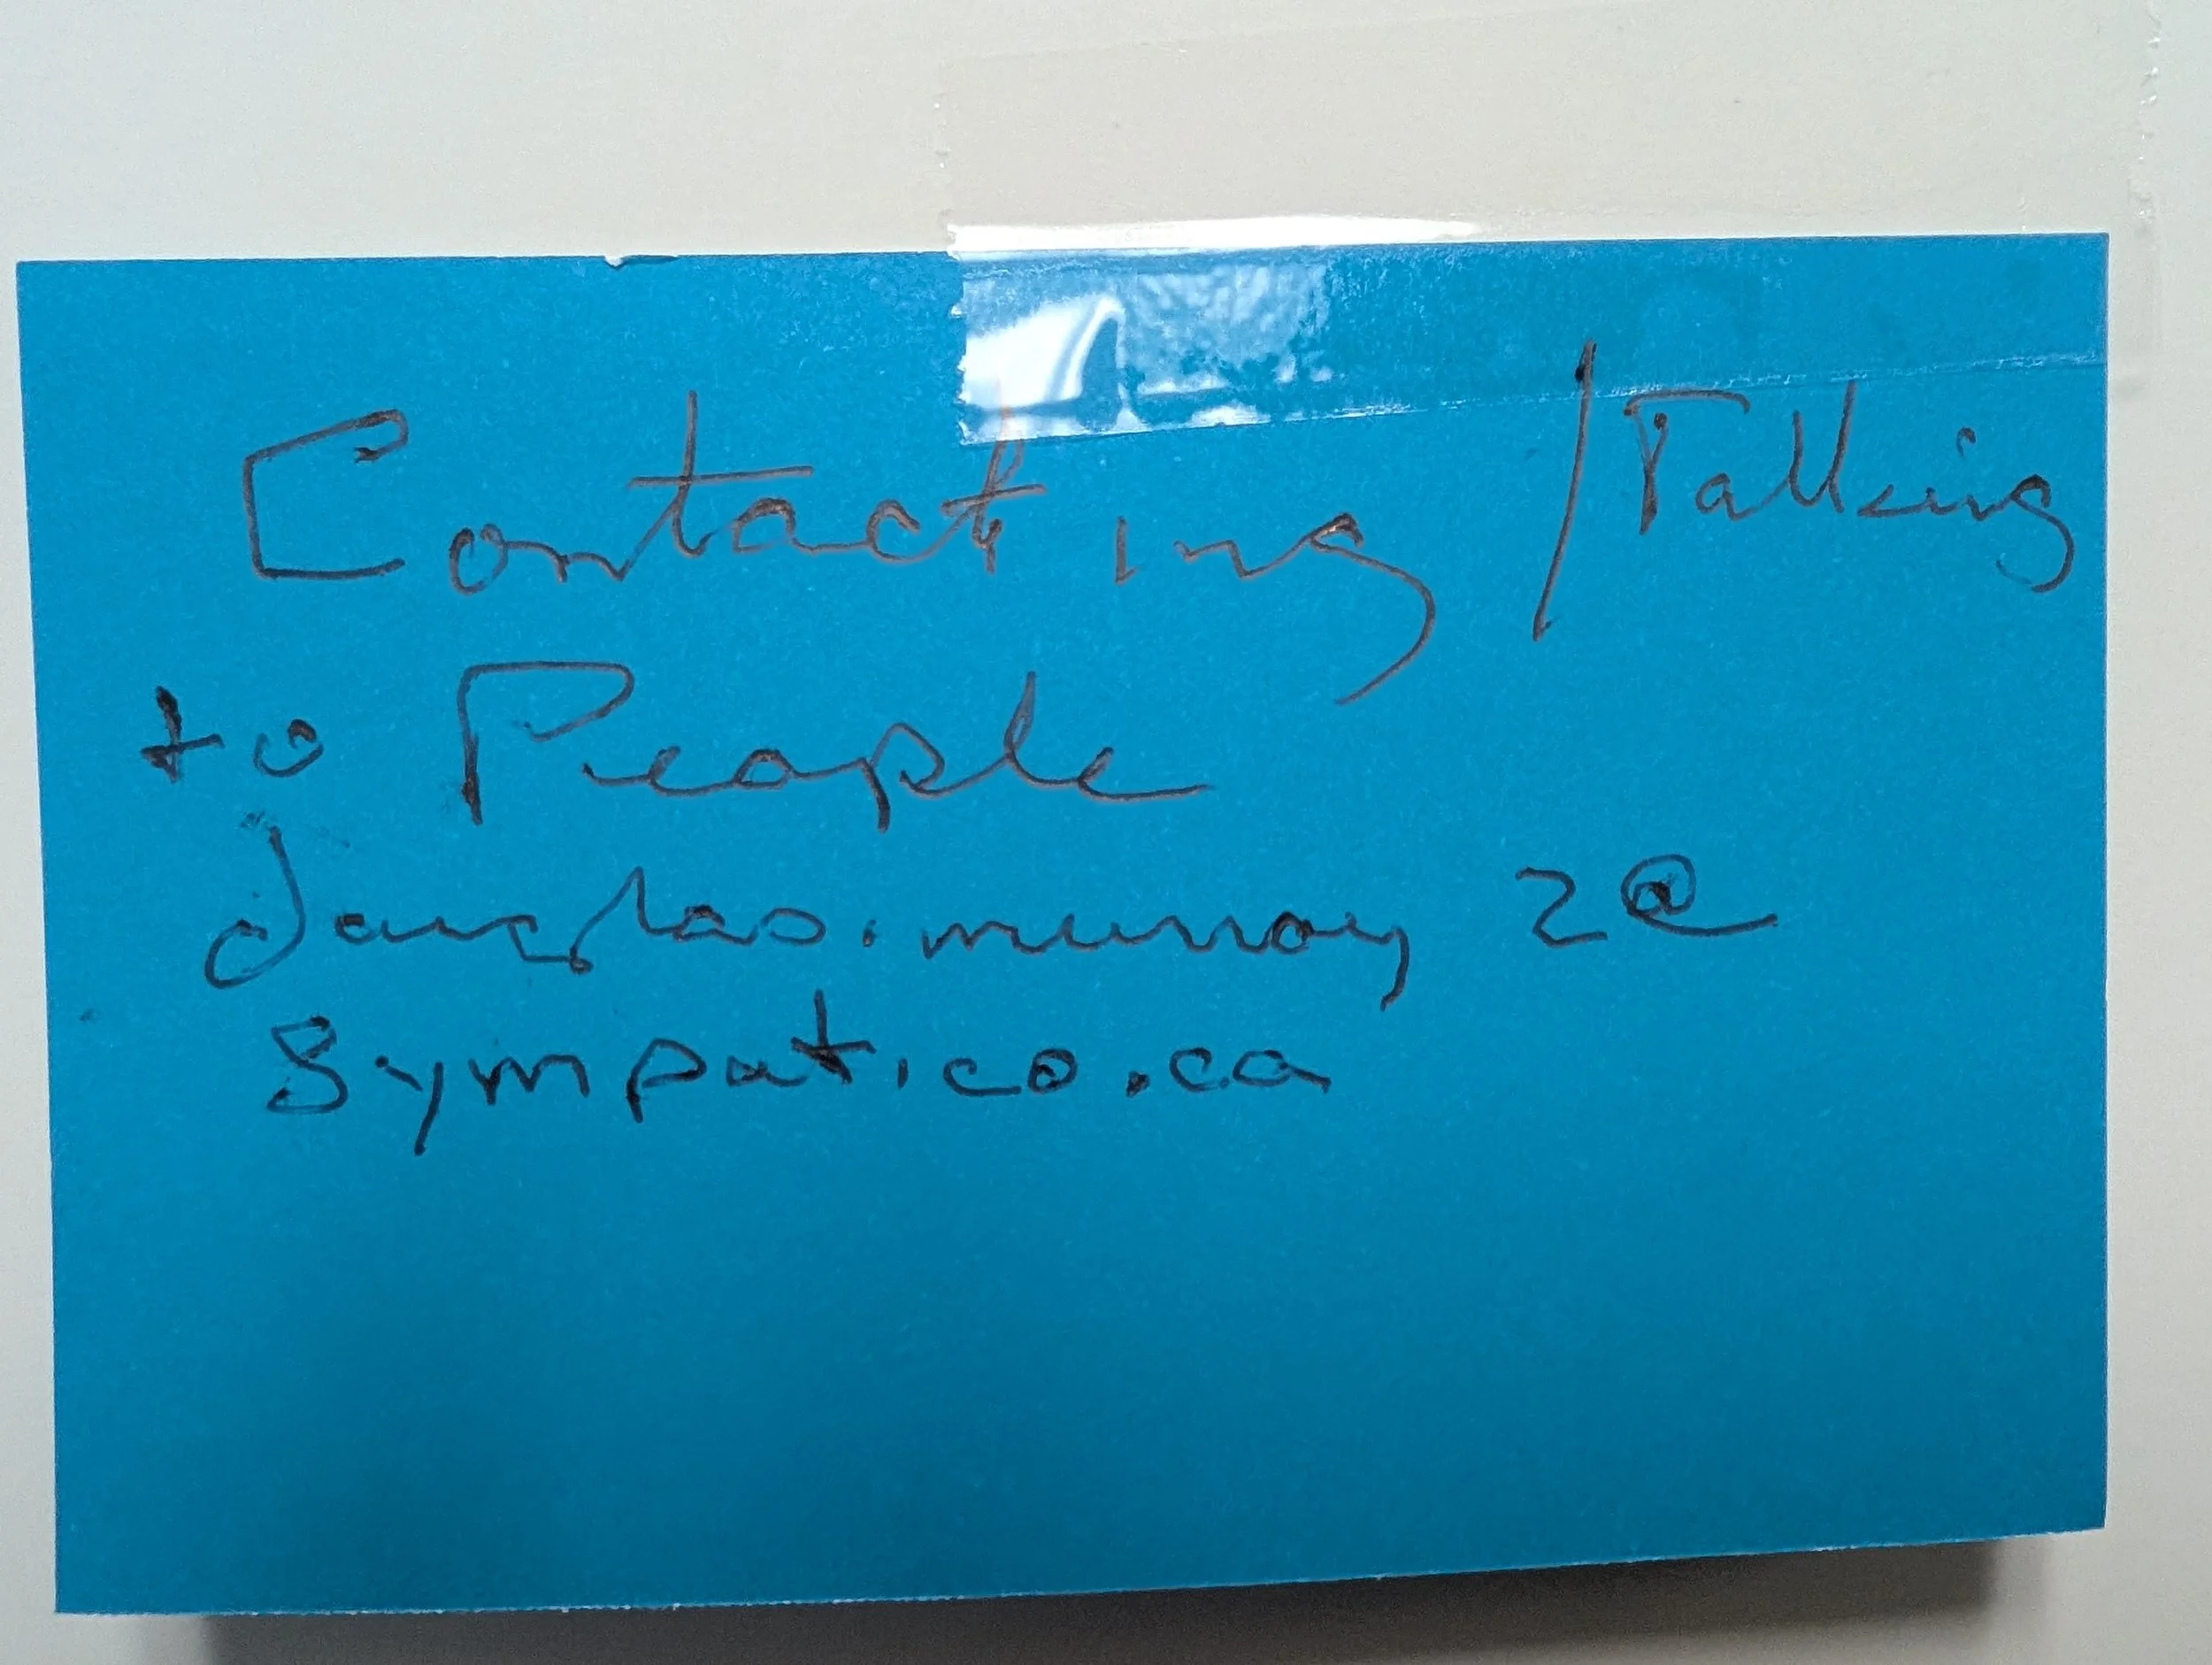 Contacting / Talking
to People
douglas.murray2@
sympatico.ca